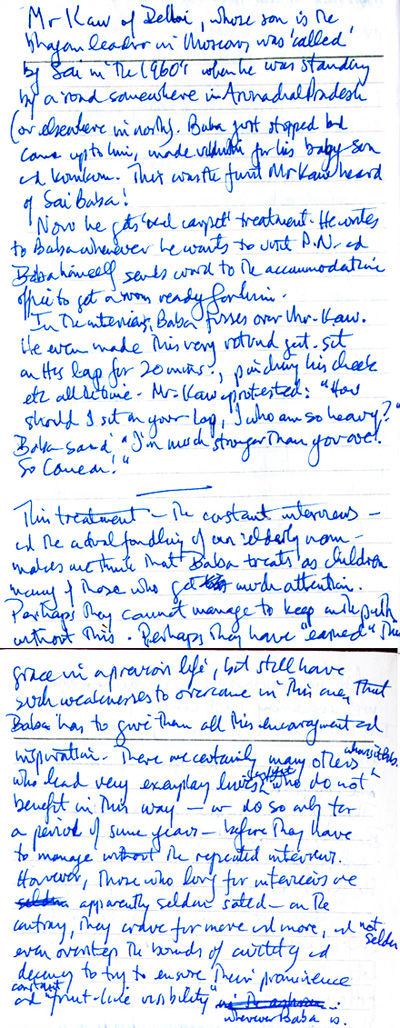 Mr Kaw of Delhi, whose son is the
bhajan leader in Moscow was 'called'
by Sai in the 1960's when he was standing
by a road somewhere in Arunachal Pradesh
(or elsewhere in north). Baba just stopped and
came up to him, made vibhuti for his baby son
and kumkum. This was the first Mr Kaw heard
of Sai Baba!
Now he gets 'red carpet' treatment. He writes
to Baba whenever he wants to visit P.N. and
Baba himself sends word to the accommodation
office to get a room ready for him.
In the interviews, Baba fusses over Mr. Kaw.
He even made this very rotund gent. sit
on His lap for 20 mins., pinching his cheek
etc all the time. Mr Kaw protested: "How
should I sit on your lap, I who am so heavy?"
Baba said "I'm much stronger than you are!
So come on!"
This treatment – the constant interviews –
and the actual fondling of an elderly man –
makes me think that Baba treats as children
many of those who get much attention.
Perhaps they cannot manage to keep on the path
without this. Perhaps they have "earned" this
grace in a previous life, but still have
such weaknesses to overcome in this one, that
Baba has to give them all this encouragment and
inspiration. There are certainly many others
who lead very exemplary lives, who do not
benefit in this way – or do so only for
a period of some years – before they have
to manage without the repeated interviews.
However, those who long for interviews are
apparently seldom sated – on the
contrary, they crave for more and more, and not seldom
even overstep the bounds of civility and
decency to try to ensure their prominence
and constant "front-line visibility"
wherever Baba is.